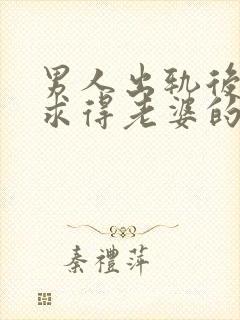 男人出轨後
求得老婆的
秦禮萍